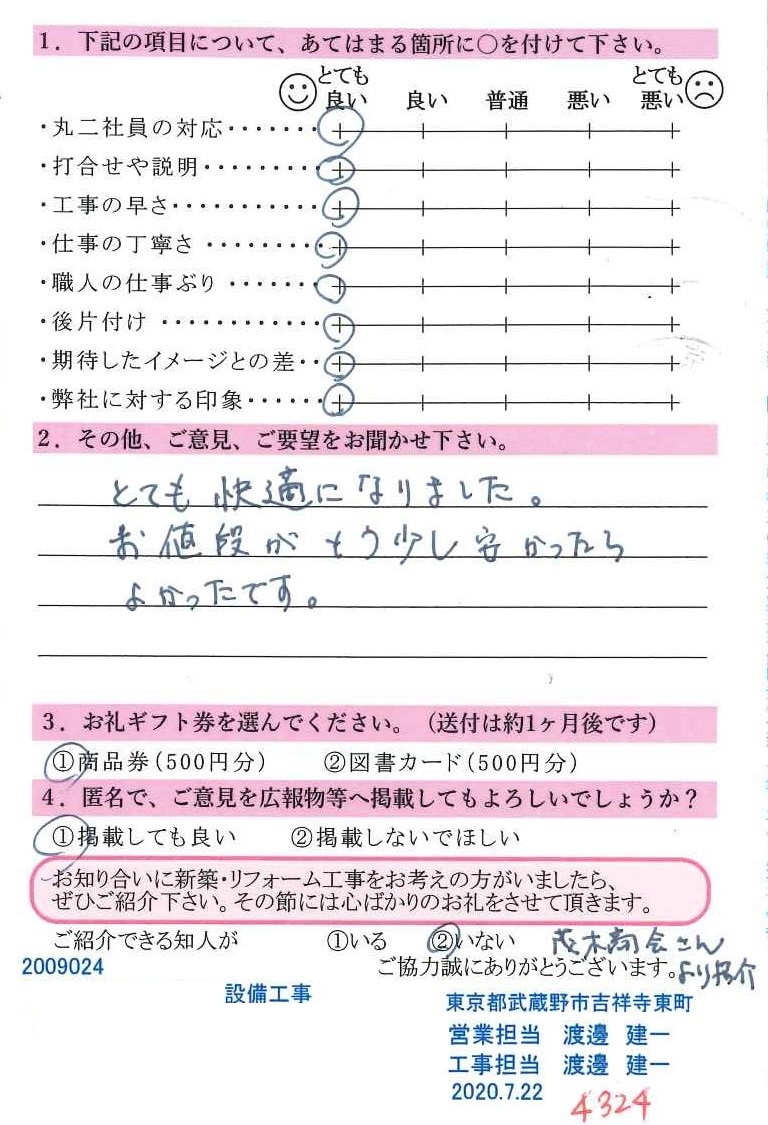 1. 下記の項目について、あてはまる箇所に○を付けて下さい。
とても とても
良い 良い 普通 悪い 悪い
・丸二社員の対応・・・・・・・
・打合せや説明・・・・・・・・・
・工事の早さ・・・・・・・・・・・
・仕事の丁寧さ・・・・・・・・・
・職人の仕事ぶり・・・・・・・
・後片付け・・・・・・・・・・・・
・期待したイメージとの差・・
・弊社に対する印象・・・・・・
2. その他、ご意見、ご要望をお聞かせ下さい。
とても快適になりました。
お値段がもう少し安かったら
よかったです。
3. お礼ギフト券を選んでください。(送付は約1ヶ月後です)
①商品券(500円分) ②図書カード(500円分)
4. 匿名で、ご意見を広報物等へ掲載してもよろしいでしょうか?
①掲載しても良い ②掲載しないでほしい
お知り合いに新築・リフォーム工事をお考えの方がいましたら、
ぜひご紹介下さい。その節には心ばかりのお礼をさせて頂きます。
ご紹介できる知人が ①いる ②いない 茂木商会さん
2009024 ご協力誠にありがとうございます。より紹介
設備工事
東京都武蔵野市吉祥寺東町
営業担当 渡邊 建一
工事担当 渡邊 建一
2020.7.22
4324